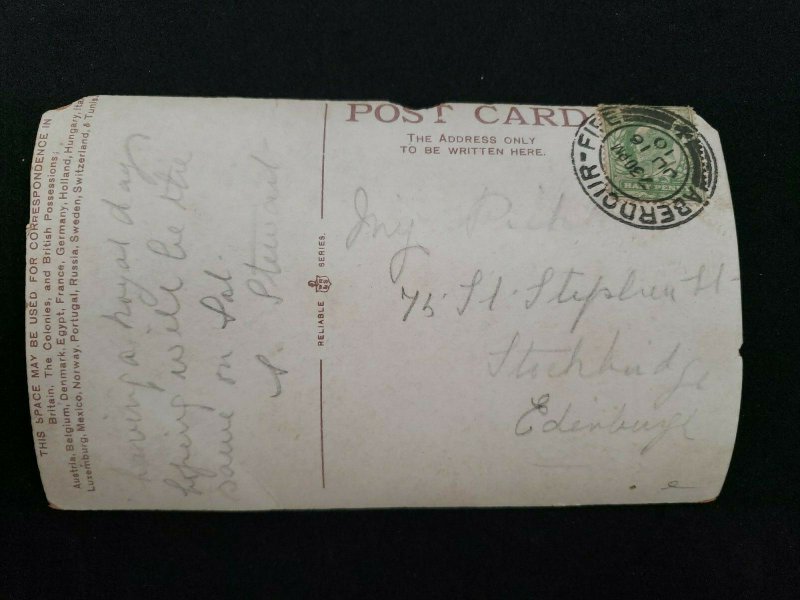 THIS SPACE MAY BE USED FOR CORRESPONDENCE IN
Britain, The Colonies, and British Possessions;
Austria, Belgium, Denmark, Egypt, France, Germany, Holland, Hungary, Ita
Luxemburg, Mexico, Norway, Portugal, Russia, Sweden, Switzerland, & Tunis
having a royal days
hoping will be the
same on Sat.
Stewart
RELIABLE SERIES.
POST CARD
THE ADDRESS ONLY
TO BE WRITTEN HERE.
ABERDOUR-FIFE
30PM
JL 16
10
HALF PENN
75 St Stephen St
Stockbridge
Edinburgh